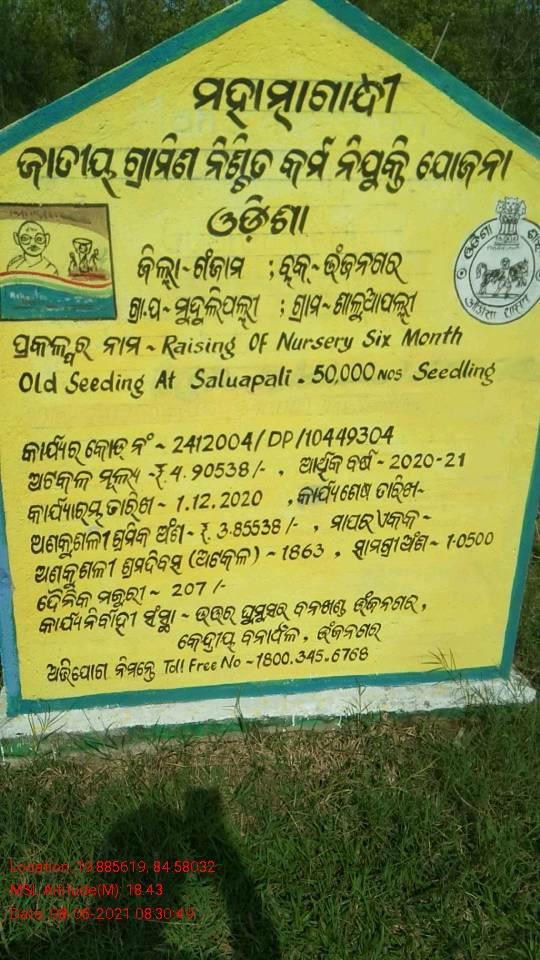 ମହାତ୍ମାଗାନ୍ଧୀ
ଜାତୀୟ ଗ୍ରାମିଣ ନିଶ୍ଚିତ କର୍ମ ନିଯୁକ୍ତି ଯୋଜନା
ଓଡ଼ିଶା
ଜିଲ୍ଲା~ଗଞ୍ଜାମ ; ବ୍ଲକ୍-ଭଂଜନଗର
ଗ୍ରା.ପ~ମୁଦୁଲିପଲ୍ଲୀ ; ଗ୍ରାମ~ଶାଳୁଆପଲ୍ଲୀ
ପ୍ରକଳ୍ପର ନାମ ~ Raising OF Nursery Six Month
Old Seeding At Saluapali - 50,000 Nos Seedling
କାର୍ଯ୍ୟର କୋଡ୍ ନଂ ~ 2412004/DP/10449304
ଅଟକଳ ମୂଲ୍ୟ -₹.4.90538/- , ଆର୍ଥିକ ବର୍ଷ - 2020-21
କାର୍ଯ୍ୟାରମ୍ଭ ତାରିଖ - 1.12.2020 , କାର୍ଯ୍ୟଶେଷ ତାରିଖ~
ଅଣକୁଶଳୀ ଶ୍ରମିକ ଅଂଶ - ₹. 3.85538/- , ମାପର ଏକକ ~
ଅଣକୁଶଳୀ ଶ୍ରମଦିବସ (ଅକେଳ) ~ 1863 , ସାମଗ୍ରୀ ଅଂଶ - 1.0500
ଦୈନିକ ମଜୁରୀ ~ 207 /-
କାର୍ଯ୍ୟନିର୍ବାହୀ ସଂସ୍ଥା ~ ଉତ୍ତର ଘୁମୁସର ବନଖଣ୍ଡ ଭଂଜନଗର,
କେନ୍ଦ୍ରୀୟ ବନାଚଂଳ , ଭଂଜନଗର
ଅଭିଯୋଗ ନିମନ୍ତେ Toll Free No ~ 1800.345.6768
Location: 19.885619, 84.58032
MSL Altitude(M): 18.43
Date: 08-06-2021 08:30:49